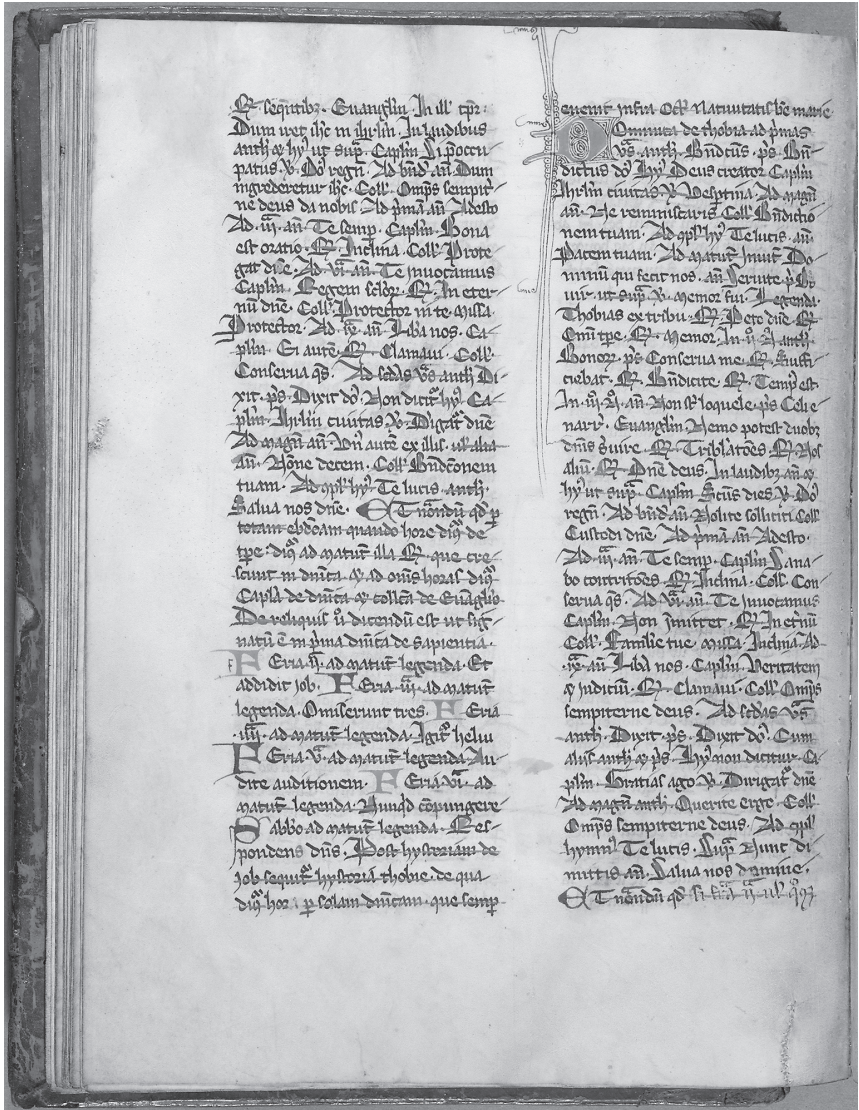 sequentibz. Evangelm. In ill tpr.
Dum iret ihc in ihrlm. In laudibus
anth & hy ut sup. Caplm Si poccu
patus. Do regn. Ad bnd an Dum
ingrederetur ihc. Coll. Omps sempit
ne deus da nobis. Ad pmā an Adesto
Ad iii. an. Te semp. Caplm. Bona
est oratio. R. Inclina. Coll. Prote
gat dne. Ad vi. an. Te invocamus
Caplm. Regem sclor. R. In eter
nū dne. Coll. Protector in te. Missa.
Protector. Ad ix. an. Liba nos. Ca
plm. Ei autē. R. Clamavi. Coll.
Conserva qs. Ad scdas vs anth Di
xit. ps. Dixit do. Non dicit hy. Ca
plm. Ihrlm civitas v. Dirigat dne
Ad magn an. Vn autē ex illis. vl alia
an. Nōne decem. Coll. Bndconem
tuam. Ad cpl hy. Te lucis. anth.
Salva nos dne. Et notandū qd p
totam ebdoam quando hore dir de
tpe. dir ad matut illa R. que cre
scunt in dnica. & ad oms horas dir
Capla de dnica & collcta de Evaglio
De reliquis v dicendū est ut sig
natū ē in pma dnica de sapientia.
Feria ii. ad matut legenda. Et
addidit iob. Feria iii. ad matut
legenda. Omiserunt tres. Feria
iiii. ad matut legenda. Igit heliu
Feria v. ad matut legenda Au
dite auditionem. Feria vi. ad
matut legenda. Nunqd cōpungere
Sabbo ad matut legenda. Res
pondens dns. Post hystoriam de
iob sequit hystoria thobie. de qua
dir hor p solam dnicam. que semp
evenit infra Oct Nativitatis be marie
Dominica de thobia ad pmas
vs. anth. Bndcus. ps. Bn
dictus do. Hy. Deus creator Caplm
Ihrlm civitas v. Vesptina. Ad magn
an. Ne reminiscaris Coll. Bndictio
nem tuam. Ad cpl hy. Te lucis. an.
Pacem tuam. Ad matut Invit. Do
minum qui fecit nos. an Servite.
ut sup. v. Memor fui. Legenda.
Thobias ex tribu. R. Peto dne R.
Omi tpe. R. Memor. In ii. N anth.
Bonor. ps Conserva me. R. Suffi
ciebat. R. Bndicite R. Tempus est.
In iii. N. an. Non st loquele. ps Celi e
narr. Evanglm Nemo potest duobz
dnis svire. R. Tribulatoes. R. Nos
alui. R. Dne deus. In laudibz an &
hy ut sup. Caplm Scus dies v Do
regn. Ad bnd an Nolite solliciti Coll
Custodi dne. Ad pmam an Adesto.
Ad iii. an. Te semp. Caplm Sana
bo contritoes. R. Inclina. Coll. Con
serva qs. Ad vi. an. Te invocamus
Caplm. Non imitret. R. In etnū
Coll. Familie tue. Missa. Inclina. Ad
ix. an. Liba nos. Caplm Veritatem
& judiciū. R. Clamavi. Coll. Omps
sempiterne deus. Ad scdas vs
anth. Dixit. ps. Dixit do. Cum
aliis anth & ps. Hy non dicitur. Ca
plm. Gratias ago v. Dirigat dne
Ad magn anth. Querite ergo. Coll
Omps sempiterne deus. Ad cpl
hymn Te lucis. Sup Nunc di
mittis an. Salva nos domine.
Et notandū qd si